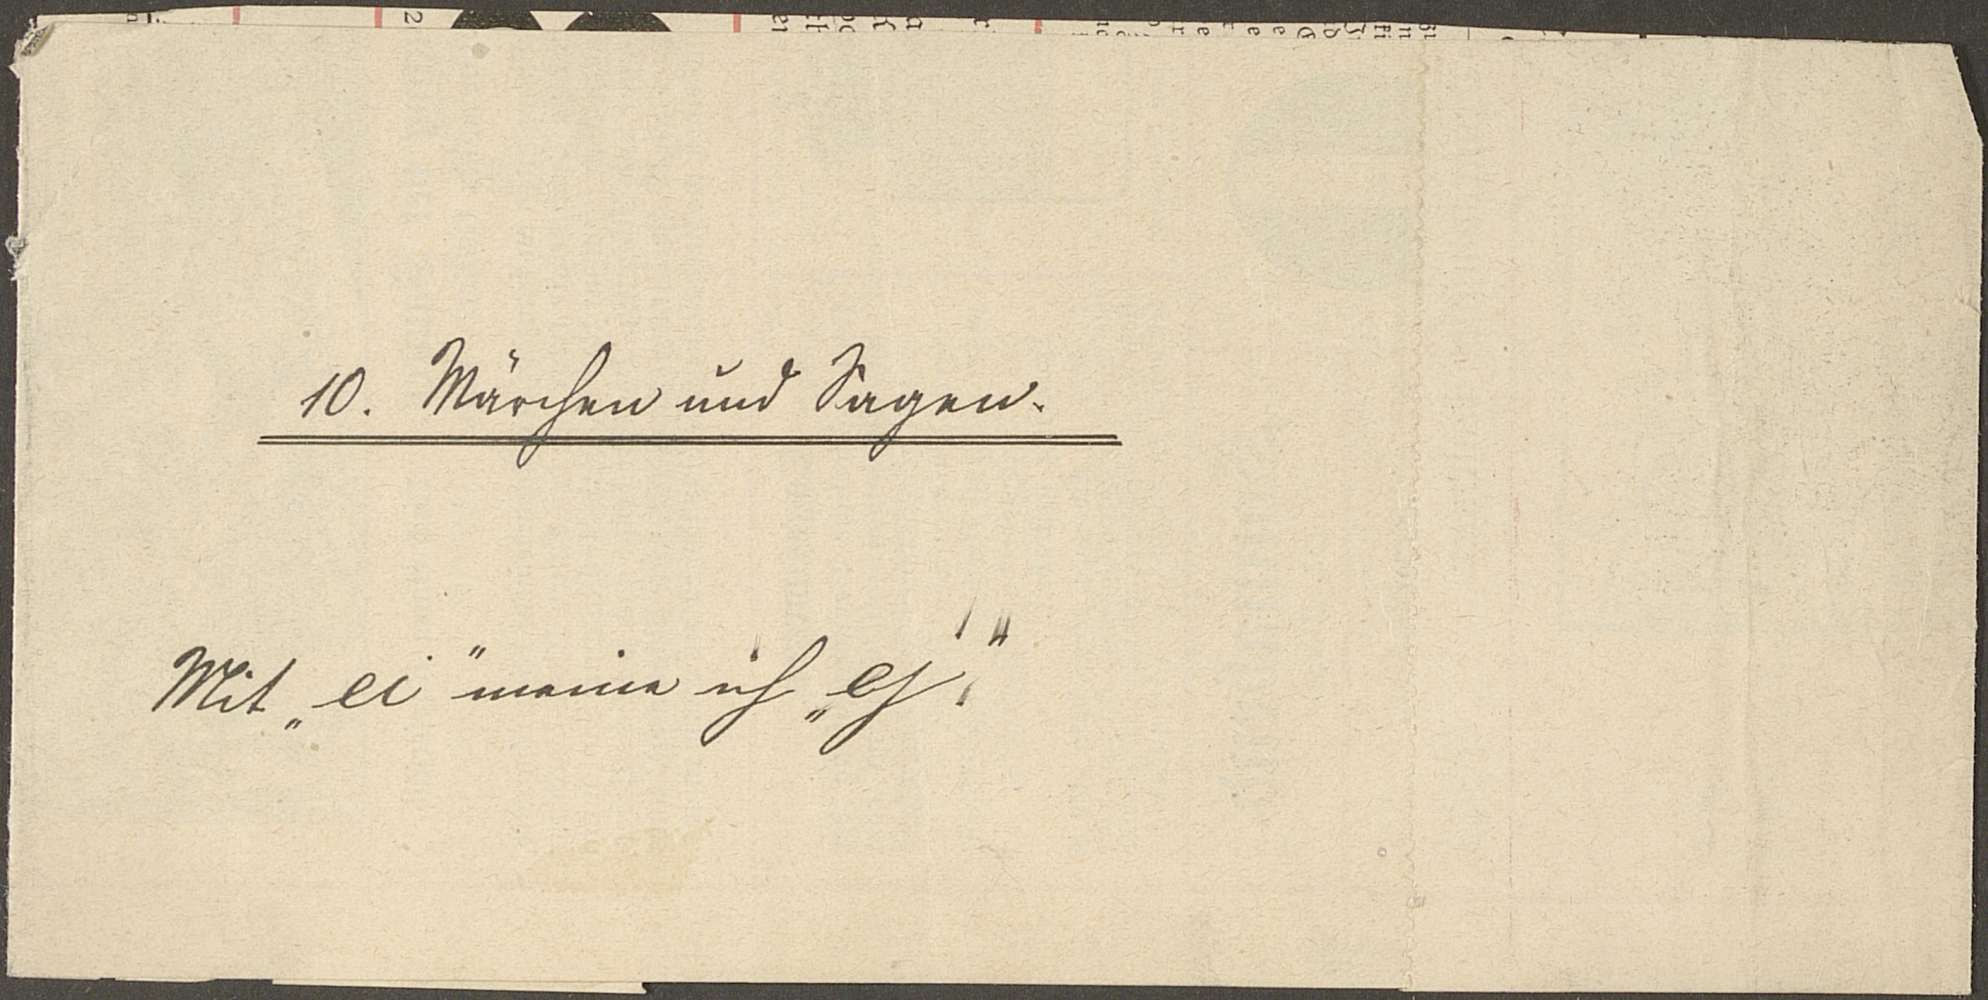 10. Märchen und Sagen.
Mit „ei" meine ich „ej"!